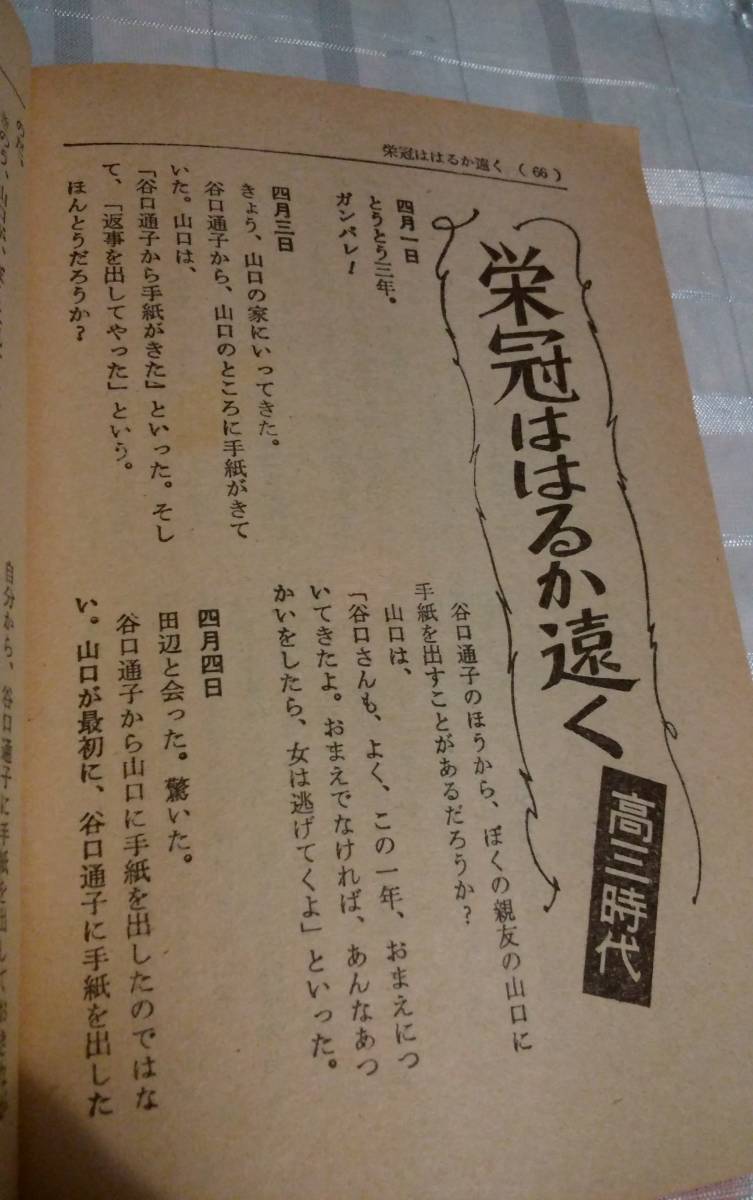 栄冠ははるか遠く (66)
栄冠ははるか遠く
高三時代
四月一日
とうとう三年。
ガンバレ!
四月三日
きょう、山口の家にいってきた。
谷口通子から、山口のところに手紙がきて
いた。山口は、
「谷口通子から手紙がきた』といった。そし
て、「返事を出してやった」という。
ほんとうだろうか?
谷口通子のほうから、ぼくの親友の山口に
手紙を出すことがあるだろうか?
山口は、
「谷口さんも、よく、この一年、おまえにつ
いてきたよ。おまえでなければ、あんなあつ
かいをしたら、女は逃げてくよ」といった。
四月四日
田辺と会った。驚いた。
谷口通子から山口に手紙を出したのではな
い。山口が最初に、谷口通子に手紙を出した
自分から、谷口通子に手紙を出して